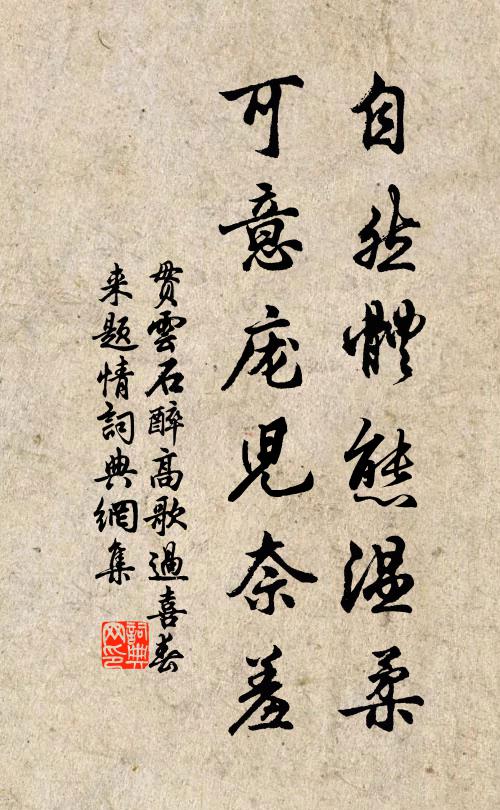 自然體態温柔
可意庬兒奈羞
貫雲石醉高歌過喜春
来題情詞典網集
詞典网印